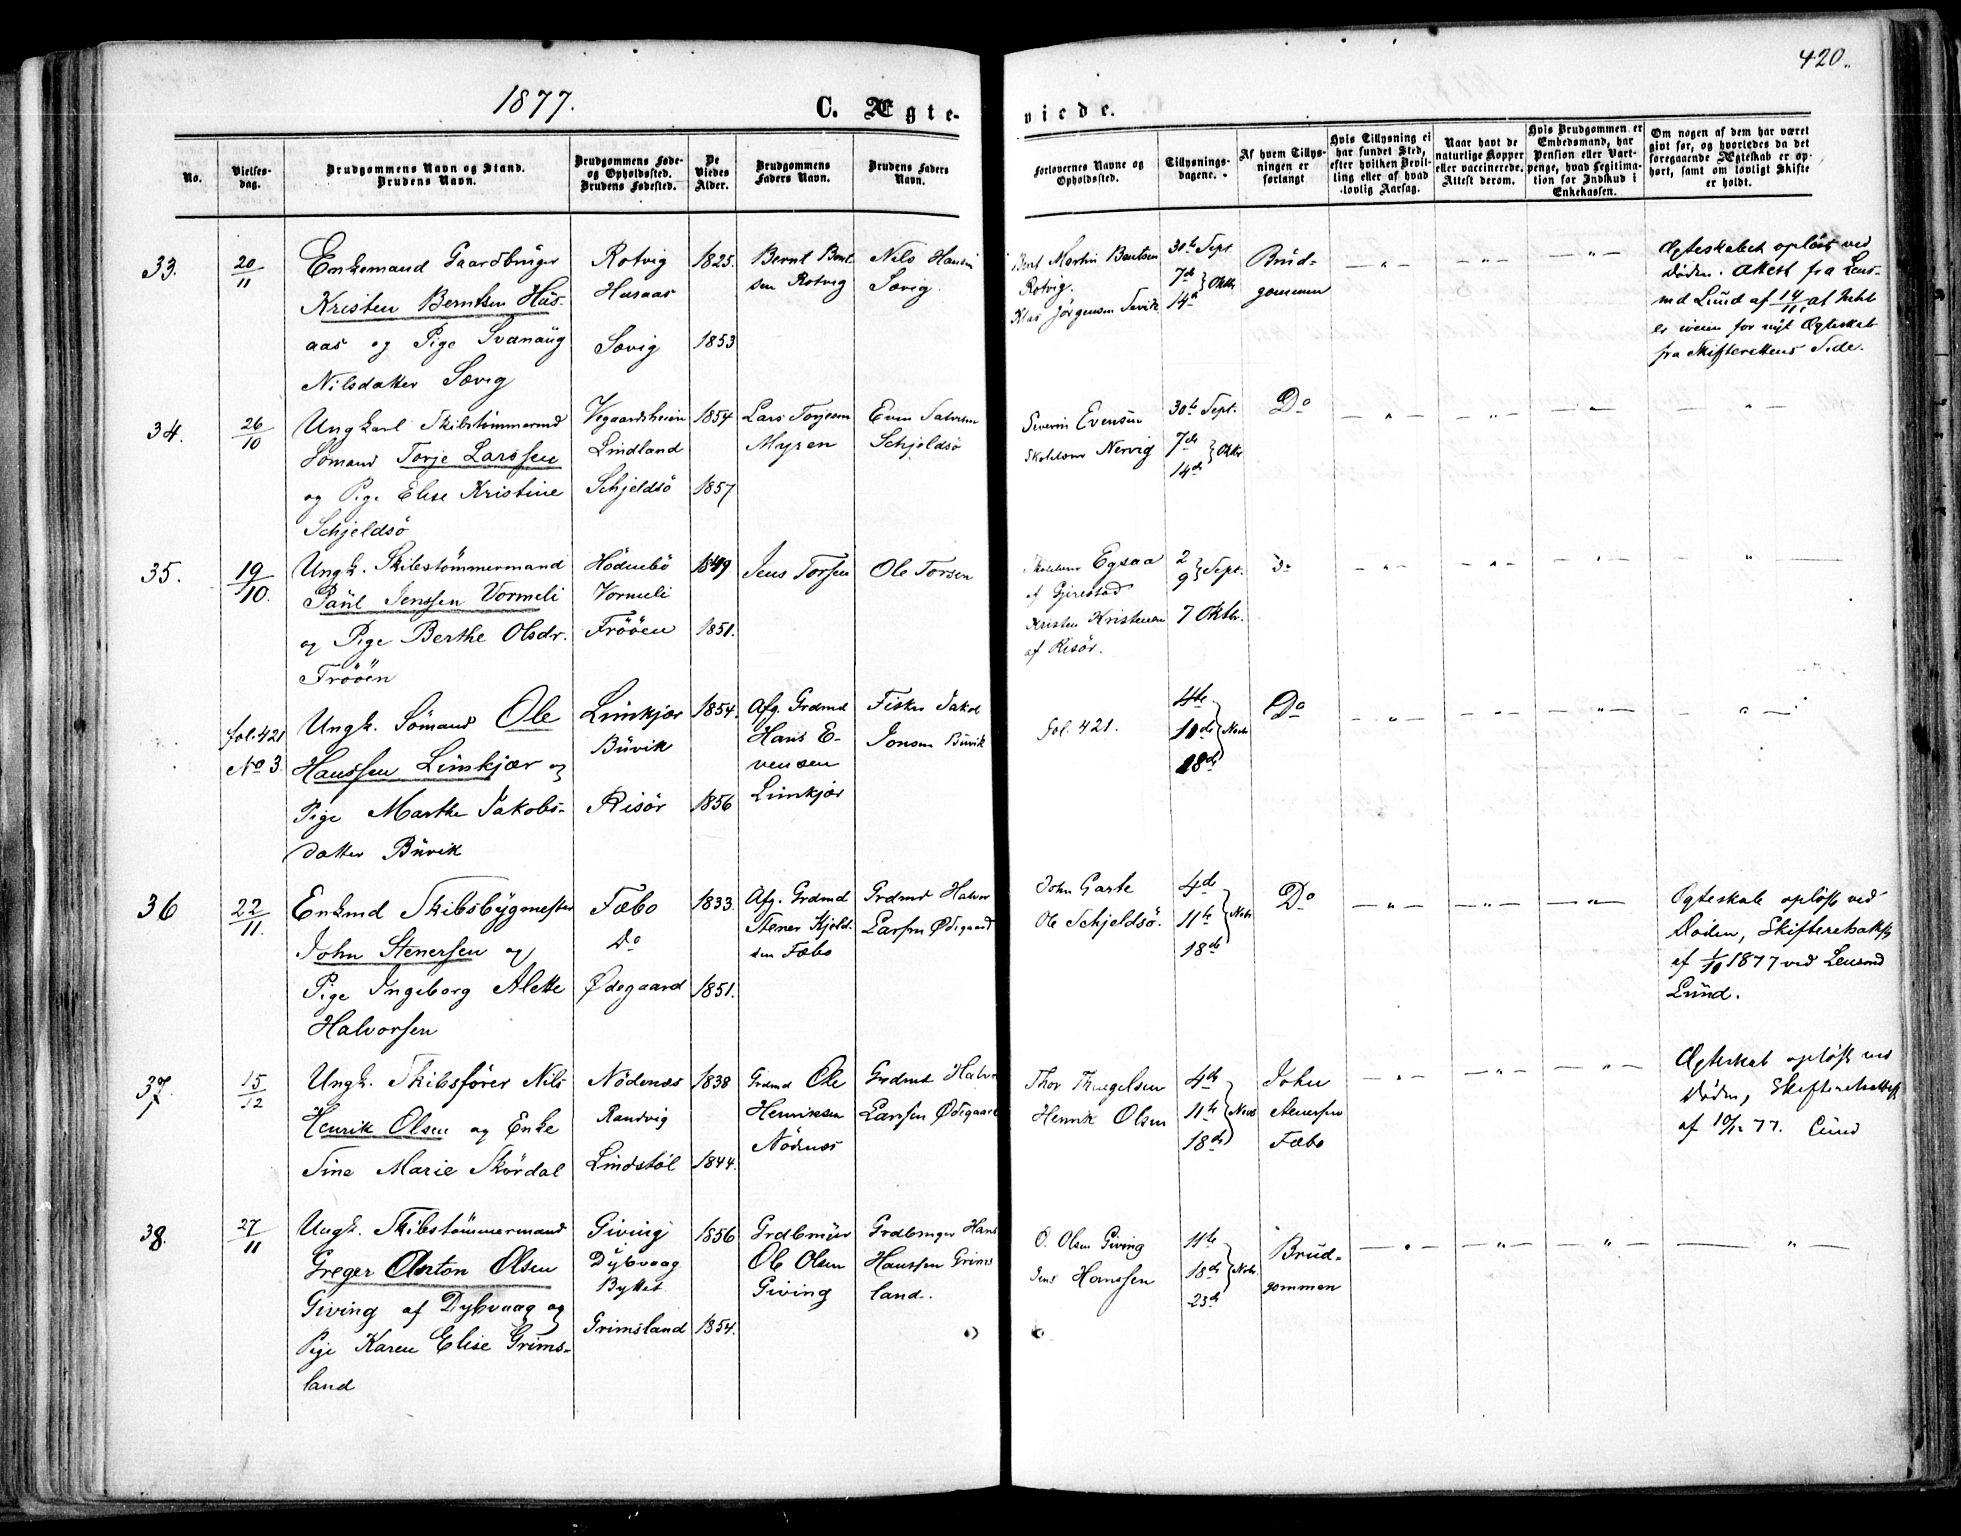 420.
1877.
C. Ægte-
viede.
No.
Vielses-
dag.
Brudgommens Navn og Stand.
Brudens Navn.
Brudgommens Føde-
og Opholdssted.
Brudens Fødested.
De
Viedes
Alder.
Brudgommens
Faders Navn.
Brudens Faders
Navn.
Forlovernes Navne og
Opholdssted.
Tillysnings-
dagene.
Af hvem Tillys-
ningen er
forlangt
Hvis Tillysning ei
har fundet Sted,
efter hvilken Bevil-
ling eller af hvad
lovlig Aarsag.
Naar havt de
naturlige Kopper
eller vaccinerede.
Attest derom.
Hvis Brudgommen er
Embedsmand, har
Pension eller Vart-
penge, hvad Legitima-
tion for Indskud i
Enkekassen.
Om nogen af dem har været
gift før, og hvorledes da det
foregaaende Ægteskab er op-
hørt, samt om lovligt Skifte
er holdt.
33.
20/11
Enkemand Gaardbruger
Kristen Berntsen Hus-
aas og Pige Svanaug
Nilsdatter Søvig
Rotvig
Husaas
Søvig
1825.
1853
Bernt Bent
sen Rotvig
Nils Hansen
Søvig.
Bent Martin Bentsen
Rotvig.
Klas Jörgensen Sevik
30te Sept.
7de } Oktbr
14de
Brud-
gommen
— „ —
— „ —
— „ —
Ægteskabet opløst ved
Døden. Attest fra Lens-
md Lund af 14/11, at Intet
er iveien for nyt Ægteskab
fra Skifterettens Side.
34.
26/10
Ungkarl Skibstömmermd
Sömand Torje Larssen
og Pige Elise Kristine
Schjeldsö
Vegaardsheien
Lindland
Schjeldsö
1854
1857
Lars Torjesen
Myren
Even Salvesen
Schjeldsö
Severin Evensen
Nervig
30te Sept.
7de } Oktbr
14de
Do
— „ —
— „ —
— „ —
— „ —
35.
19/10.
Ungk. Skibstömmermand
Paul Jenssen Vormeli
og Pige Berthe Olsdr.
Trööen
Hödnebö
Vormeli
Trööen
1849
1851.
Jens Torsen
Ole Torsen
Egsaa
af Gjerestad
Kristen Kristensen
af Risör.
2
9 } Sept.
7 Oktbr.
Do
— „ —
— „ —
— „ —
— „ —
fol. 421
No 3
Ungk. Sömand Ole
Hanssen Limkjær og
Pige Marthe Jakobs-
datter Buvik
Limkjær
Buvik
Risör
1854.
1856
Afg. Grdmd
Hans E-
vensen
Limkjær
Fisker Jakob
Jonsen Buvik
fol. 421.
4de
10de } Novbr
18de
Do
— „ —
— „ —
— „ —
— „ —
36
22/11.
Enkmd Skibsbygmester
John Stenersen og
Pige Ingeborg Alette
Halvorsen
Fæbo
Do
Ødegaard
1833.
1851.
Afg. Grdmd
Stener Kjeld-
sen Fæbo
Grdmd Halvor
Larsen Ødegaard
John Garte
Ole Schjeldsö.
4de
11te } Nobr
18de
Do
— „ —
— „ —
— „ —
Ægteskab opløst ved
Døden, Skifteretsatst
af 1/10 1877 ved Lensmd
Lund.
37.
15/12
Ungk. Skibsförer Nils
Henrik Olsen og Enke
Tine Marie Skördal
Nödenæs
Randvig
Lindstöl
1838
1844.
Grdmd Ole
Henriksen
Nödnæs
Grdmd Halvor
Larssen Ødegaard
Thor
Henrik Olsen
4de
11te } Novbr
18de
John
Stenersen
Fæbo
— „ —
— „ —
— „ —
Ægteskab opløst ved
Døden, Skifteretsattest
af 10/12 77. Lund
38.
27/11
Ungk. Skibstömmermand
Greger Anton Olsen
Giving af Dybvaag og
Pige Karen Elise Grims-
land
Giving
Dybvaag
Byttet
Grimsland
1856
1854.
Grdbruger
Ole Olsen
Giving
Grdbruger Hans
Hanssen Grims
land.
O. Olsen Giving
Jens Hanssen
11te
18de } Nobr
25de
Brud-
gommen
— „ —
— „ —
— „ —
— „ —